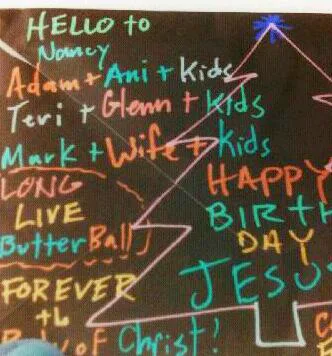 HELLO to
Nancy
Adam + Ani + Kids
Teri + Glenn + Kids
Mark + Wife + Kids
LONG
LIVE
ButterBall
HAPPY
BIRTH
DAY
JESUS
FOREVER
of Christ!